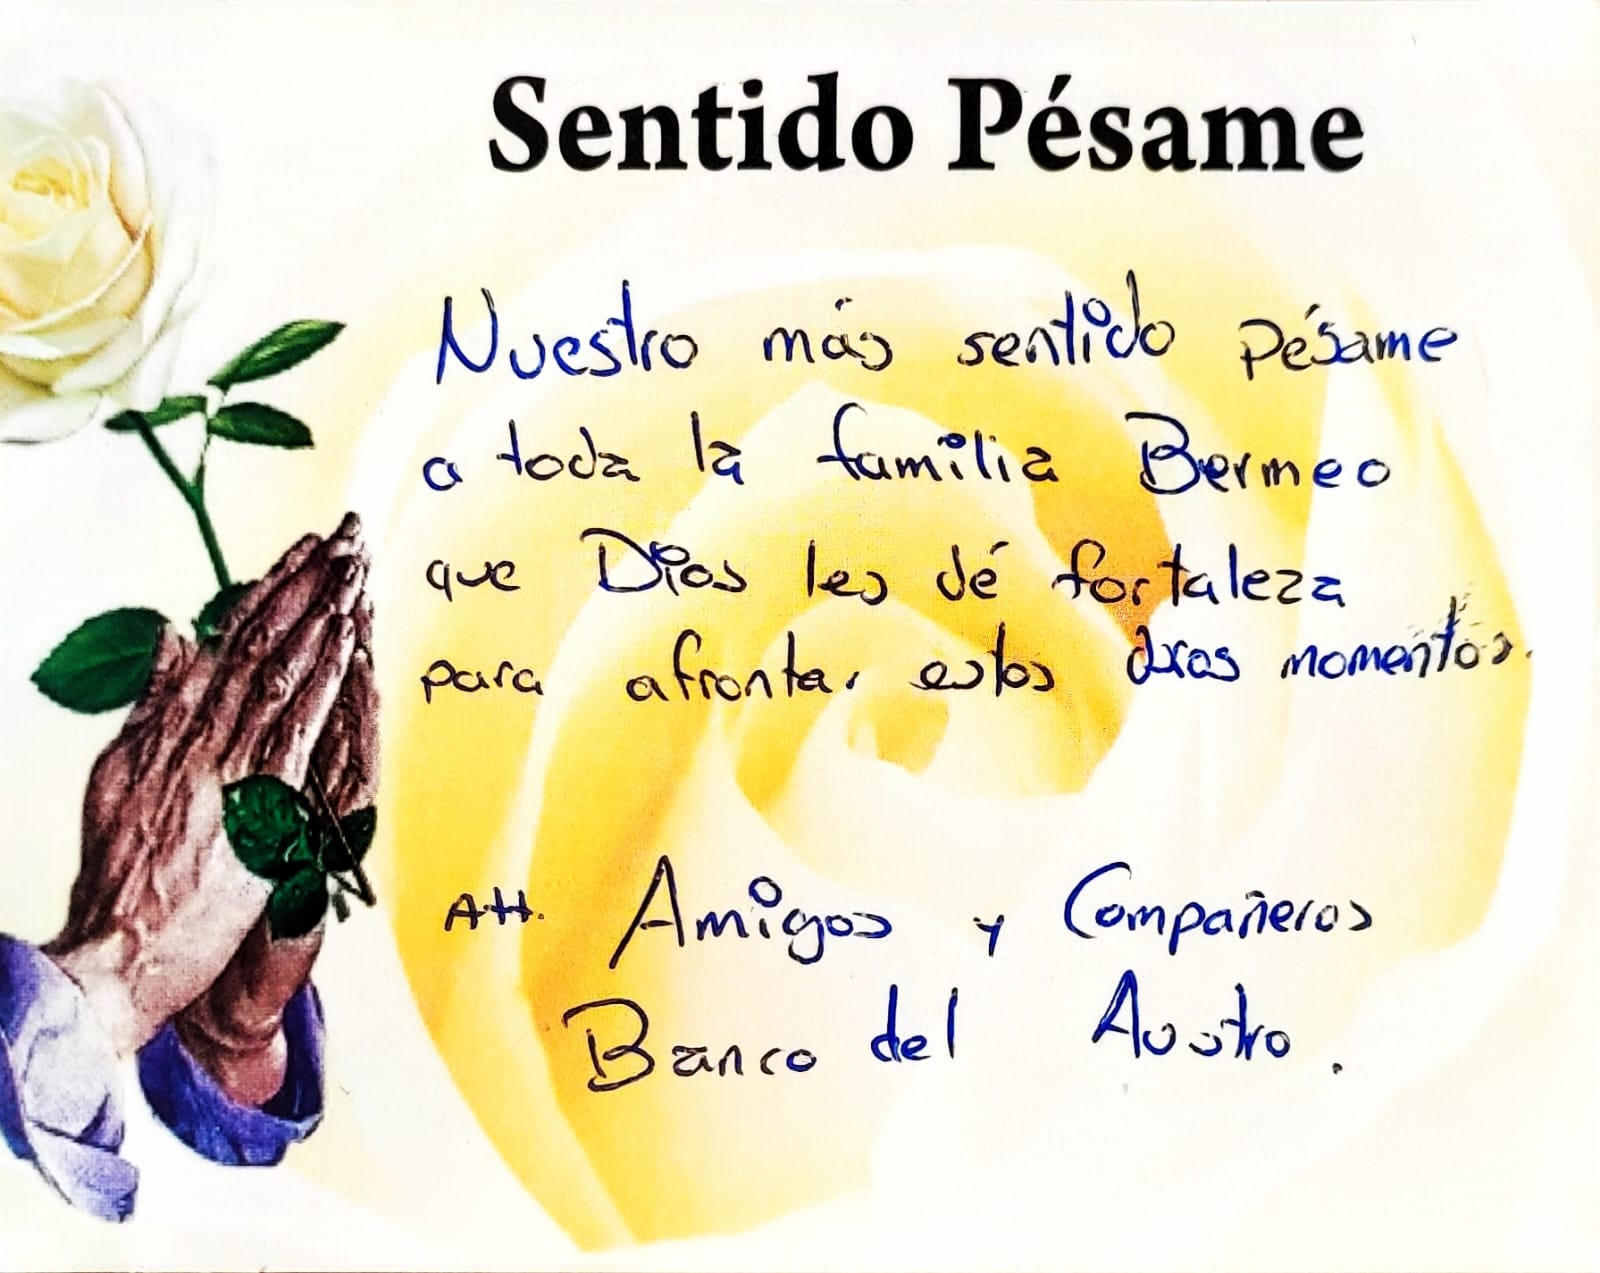 Sentido Pésame
Nuestro más sentido pésame
a toda la familia Bermeo
que Dios les dé fortaleza
para afrontar estos duros momentos.
Att. Amigos y Compañeros
Banco del Austro.